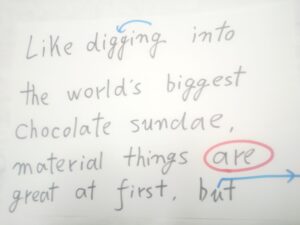 Like digging into
the world's biggest
chocolate sundae,
material things are
great at first, but